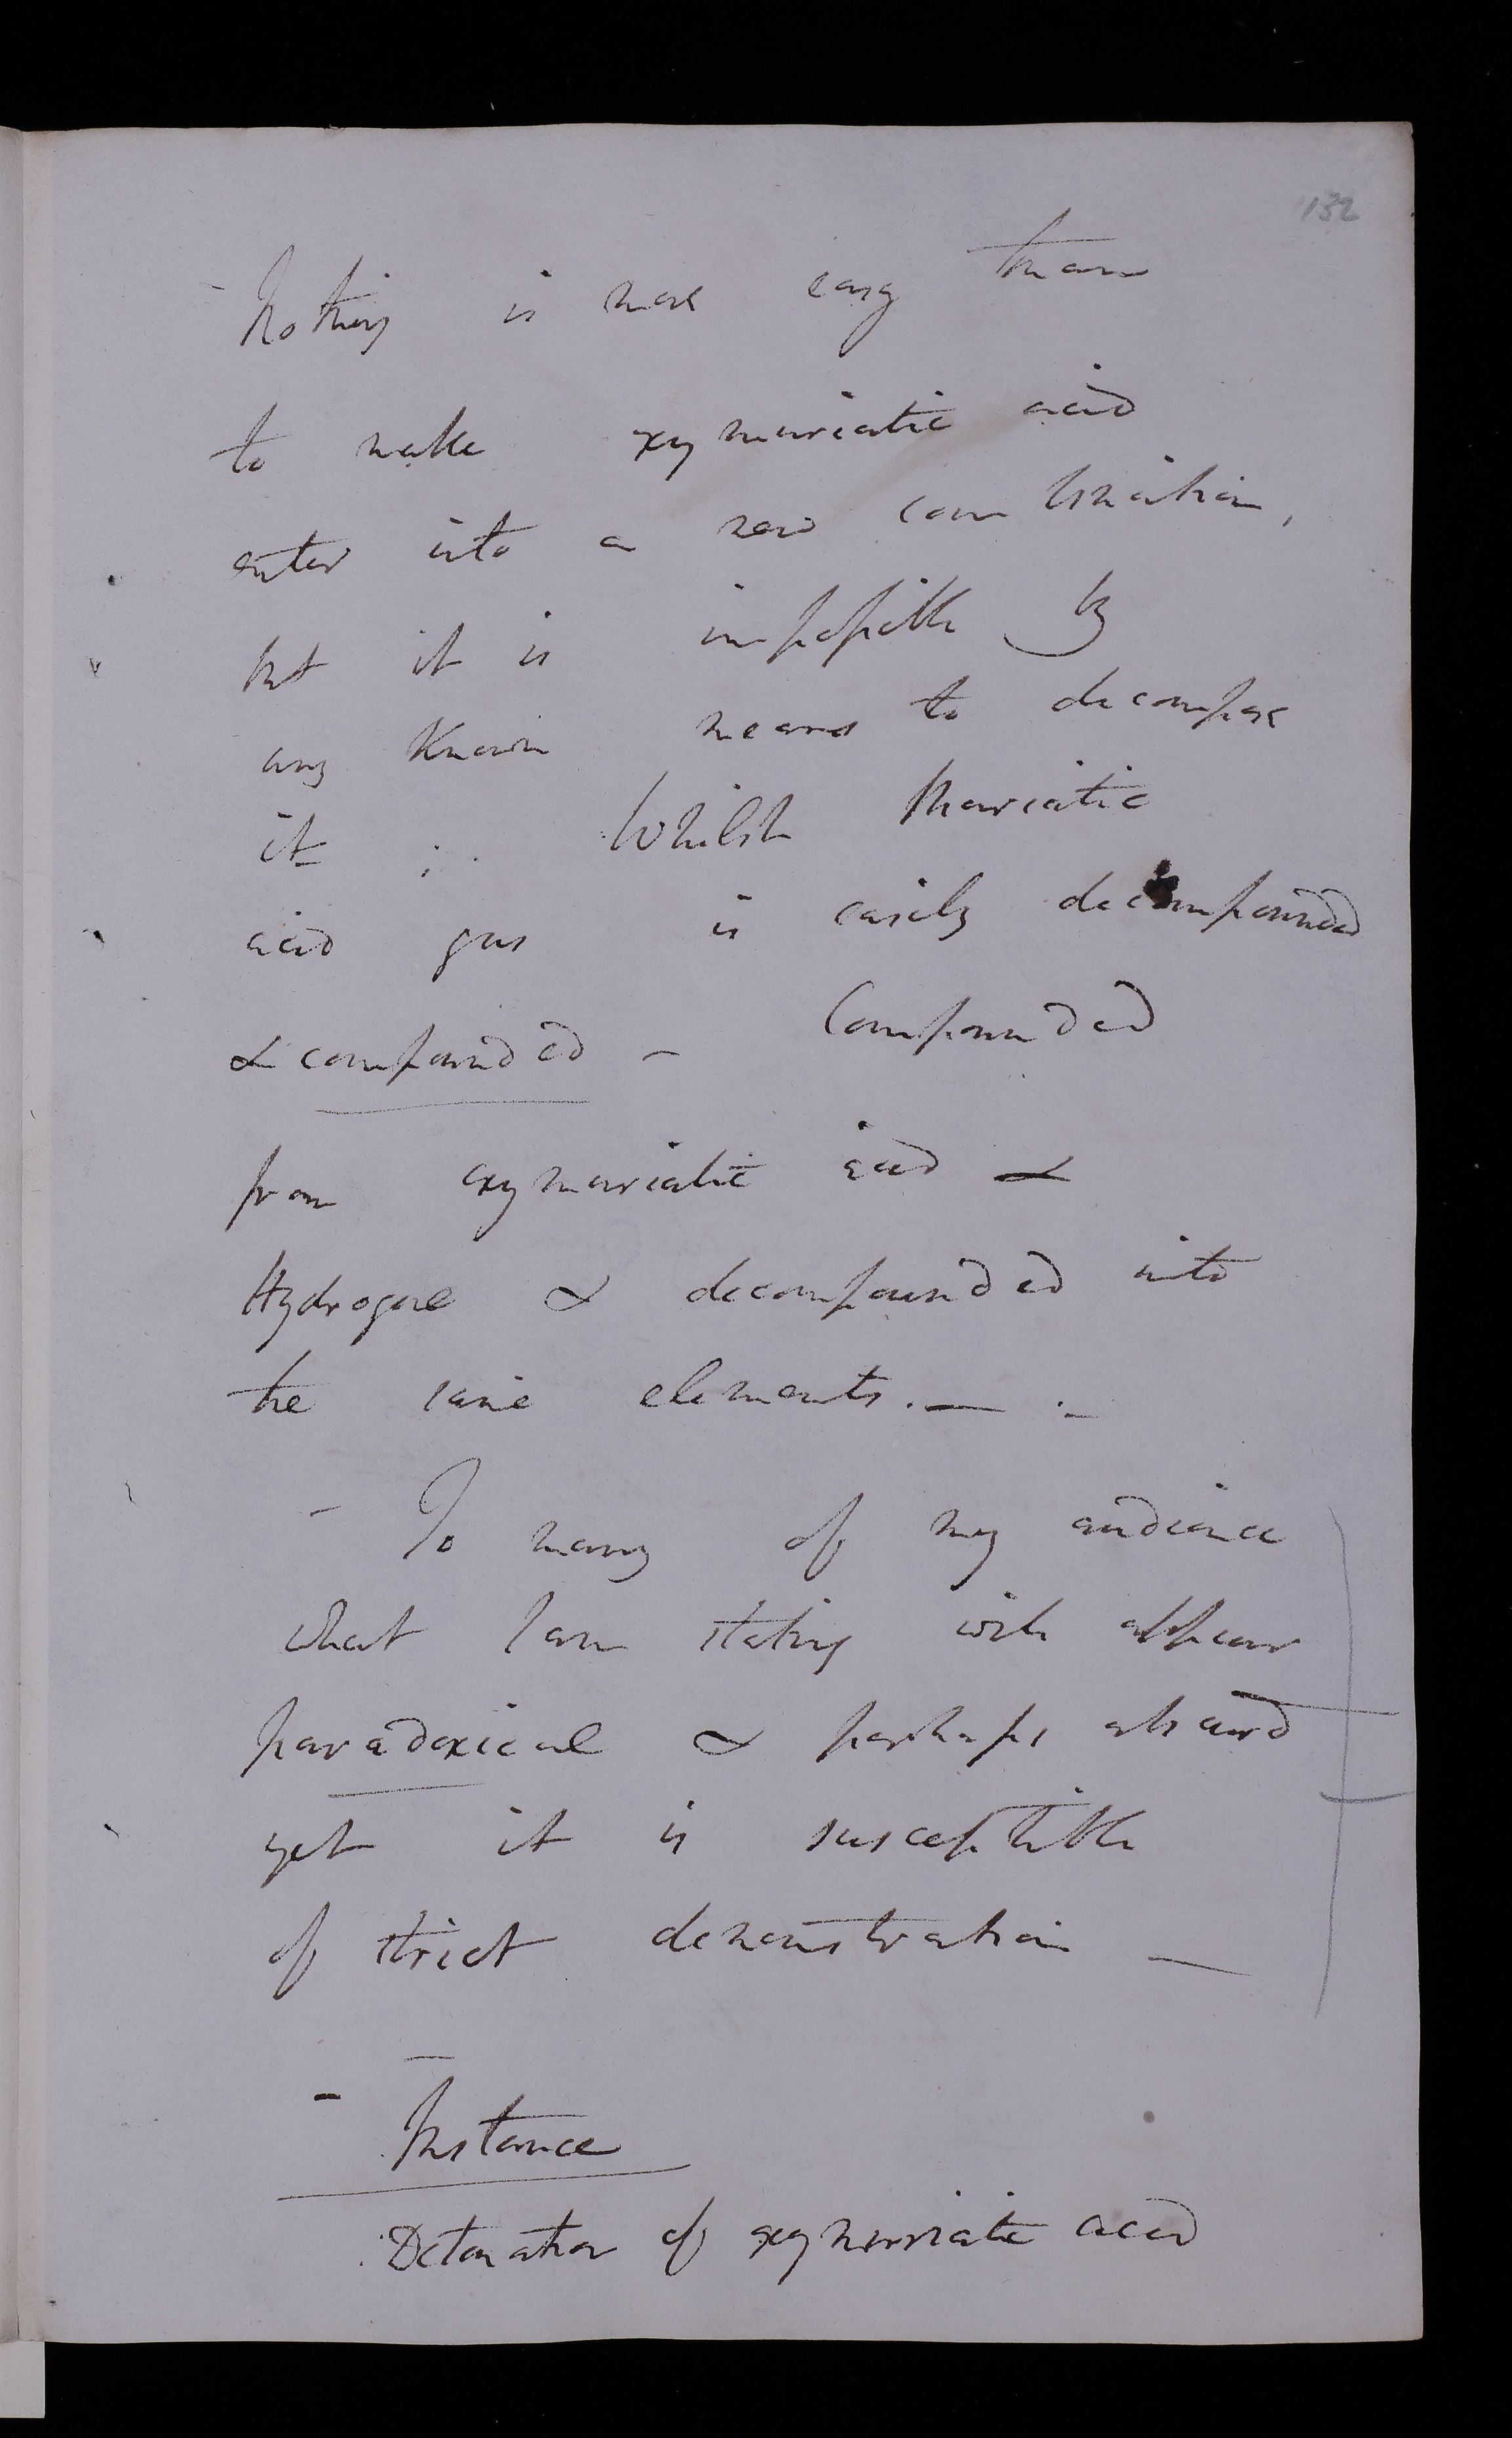 132
- Nothing is more easy than
to make oxymuriatic acid
enter into a new combination,
but it is impossible by
any known means to decompose
it ; Whilst Muriatic
acid gas is easily decompounded
& compounded - Compounded
from oxymuriatic acid &
Hydrogene & decompounded into
the same elements. — . -
- To many of my audience
what I am stating will appear
paradoxical & perhaps absurd
yet it is susceptible
of strict demonstration —
- Instance
Detonation of oxymuriatic acid